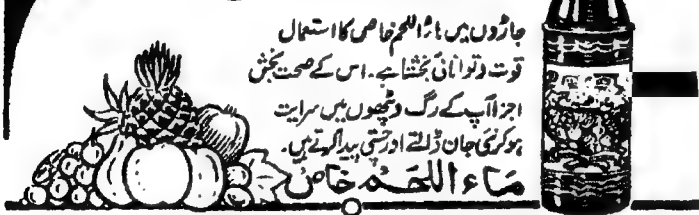 جاڑوں میں ماءُ اللحم خاص کا استعمال
قوت و توانائی بخشتا ہے۔ اس کے صحت بخش
اجزا آپ کے رگ و پٹھوں میں سرایت
ہو کر نئی جان ڈالتے اور چستی پیدا کرتے ہیں۔
ماء اللحم خاص